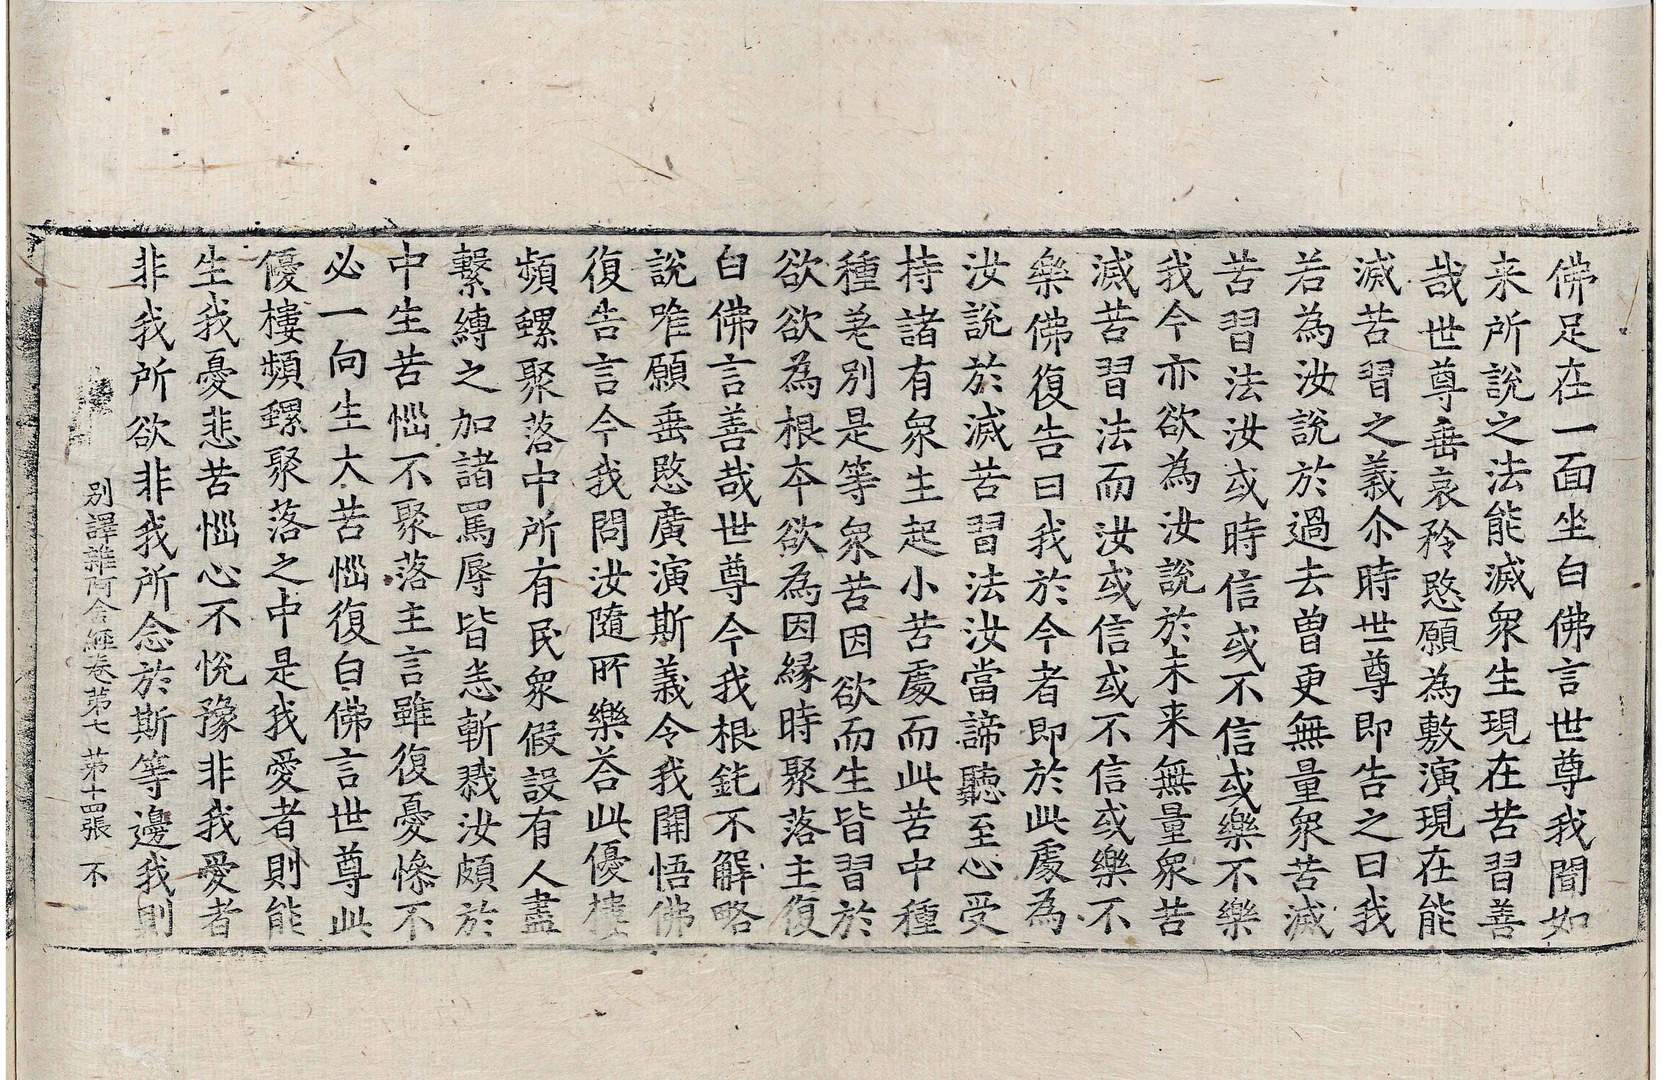 佛足在一面坐白佛言世尊我聞如
来所說之法能滅衆生現在苦習善
哉世尊垂哀矜愍願為敷演現在能
滅苦習之義尒時世尊即告之曰我
若為汝說於過去曽更無量衆苦滅
苦習法汝或時信或不信或樂不樂
我今亦欲為汝說於未来無量衆苦
滅苦習法而汝或信或不信或樂不
樂佛復告曰我於今者即於此處為
汝說於滅苦習法汝當諦聽至心受
持諸有衆生起小苦處而此苦中種
種差別是等衆苦因欲而生皆習於
欲欲為根本欲為因緣時聚落主復
白佛言善哉世尊今我根鈍不解略
說唯願垂愍廣演斯義令我開悟佛
復告言今我問汝隨所樂荅此優樓
頻螺聚落中所有民衆假設有人盡
繫縛之加諸罵辱皆恚斬戮汝頗於
中生苦惱不聚落主言雖復憂慘不
必一向生大苦惱復白佛言世尊此
優樓頻螺聚落之中是我愛者則能
生我憂悲苦惱心不悅豫非我愛者
非我所欲非我所念於斯等邊我則
別譯雜阿含經卷第七 第十四張 不